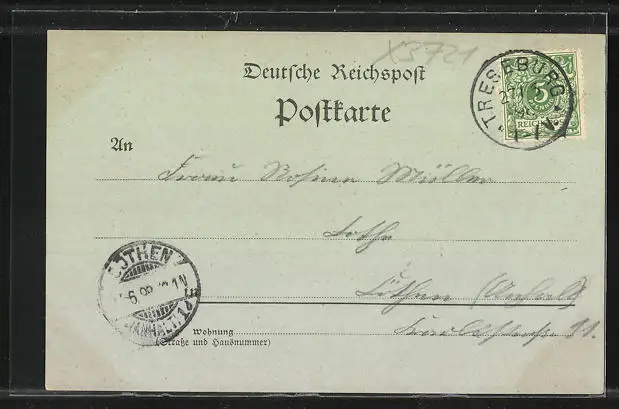 X3721
Deutsche Reichspost
Postkarte
TRESEBURG
5
REICHSPOST
An
Frau Rosine Müller
Cöthen (Anhalt)
COTHEN
(ANHALT) 1
Wohnung
(Straße und Hausnummer)